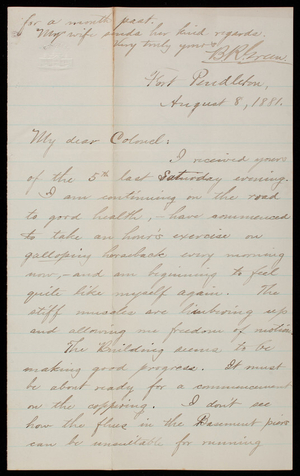 for a month past.
My wife sends her kind regards.
Very truly yours
B R Green
Fort Pendleton,
August 8, 1881.
My dear Colonel:
I received yours
of the 5th last Saturday evening.
I am continuing on the road
to good health, - have commenced
to take an hour's exercise on
galloping horseback every morning
now, - and am beginning to feel
quite like myself again. The
stiff muscles are limbering up
and allowing me freedom of motion.
The Building seems to be
making good progress. It must
be about ready for a commencement
on the coppering. I don't see
how the flues in the Basement piers
can be unsuitable for running